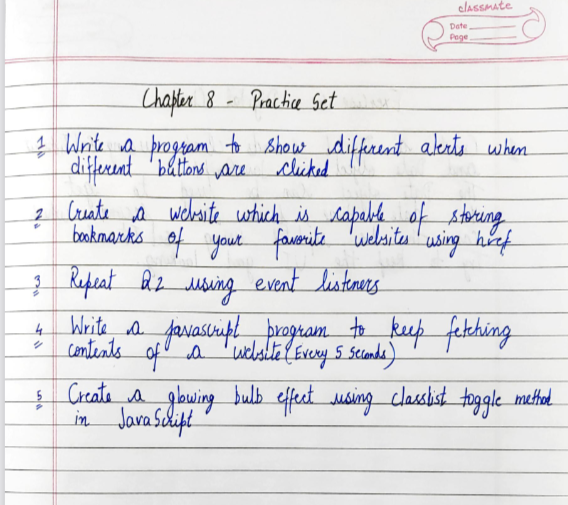 classmate
Date
Page
Chapter 8 - Practice Set
1 Write a program to show different alerts when
different buttons are clicked
2 Create a website which is capable of storing
bookmarks of your favorite websites using href
3 Repeat Q2 using event listeners
4 Write a javascript program to keep fetching
contents of a website (Every 5 seconds)
5 Create a glowing bulb effect using classlist toggle method
in JavaScript